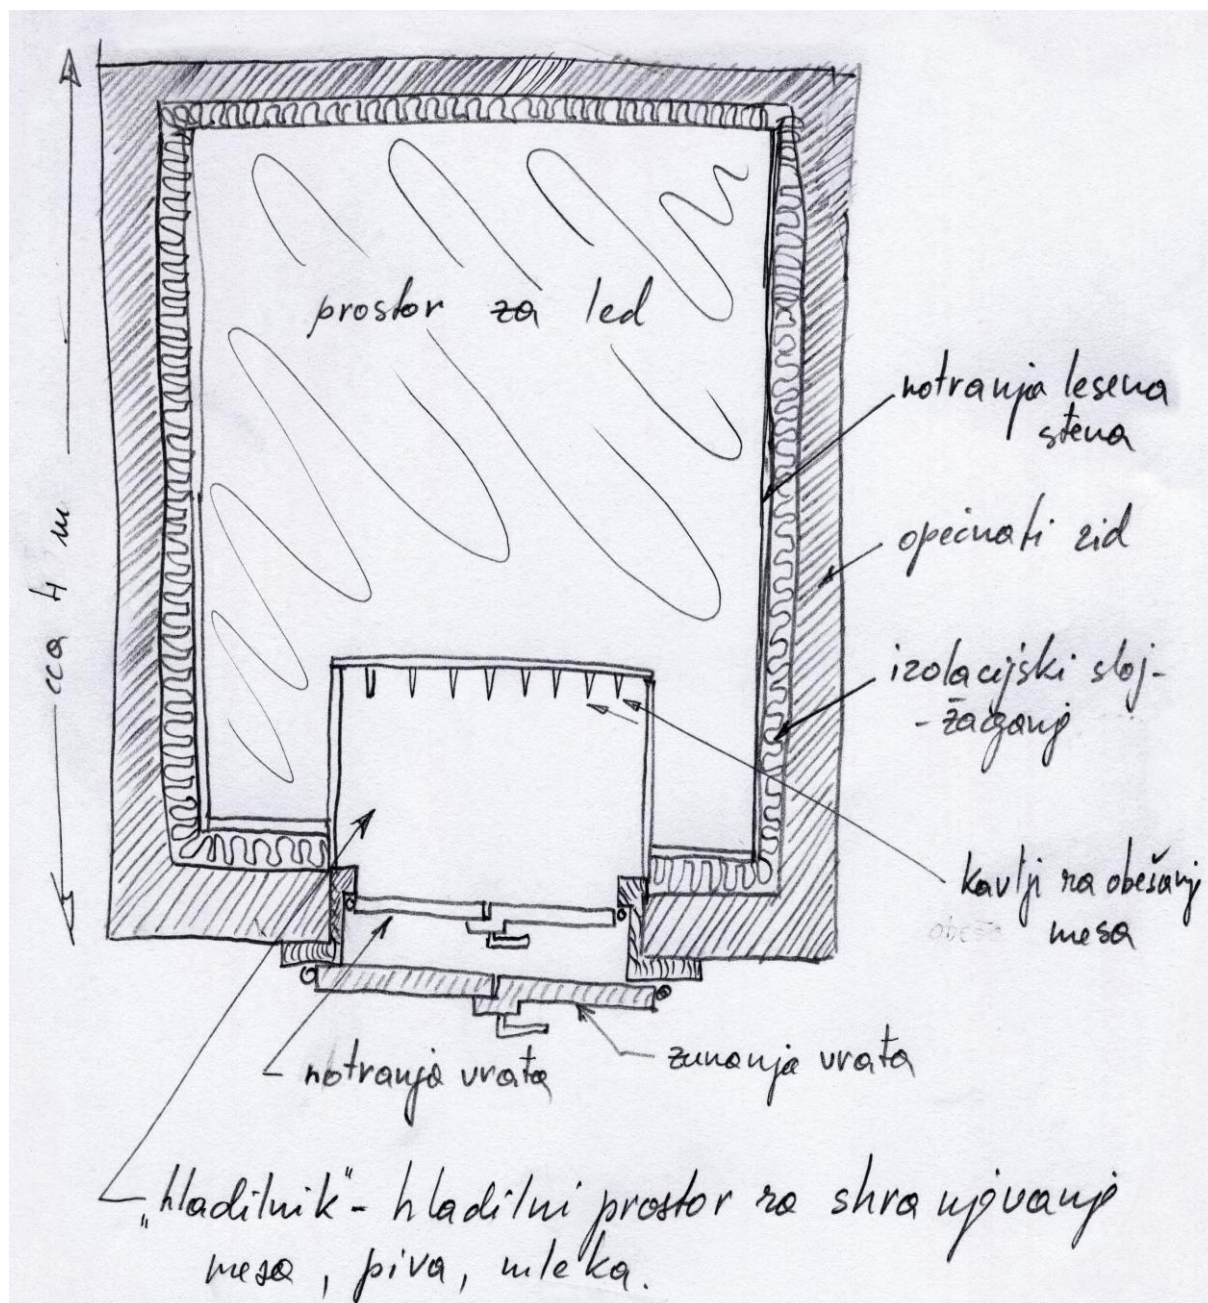 cca 4 m
prostor za led
notranja lesena
stena
opečnati zid
izolacijski sloj-
- žaganj
kavlji za obešanj
mesa
obeša
notranja vrata
zunanja vrata
„hladilnik" - hladilni prostor za shranjevanj
mesa, piva, mleka.